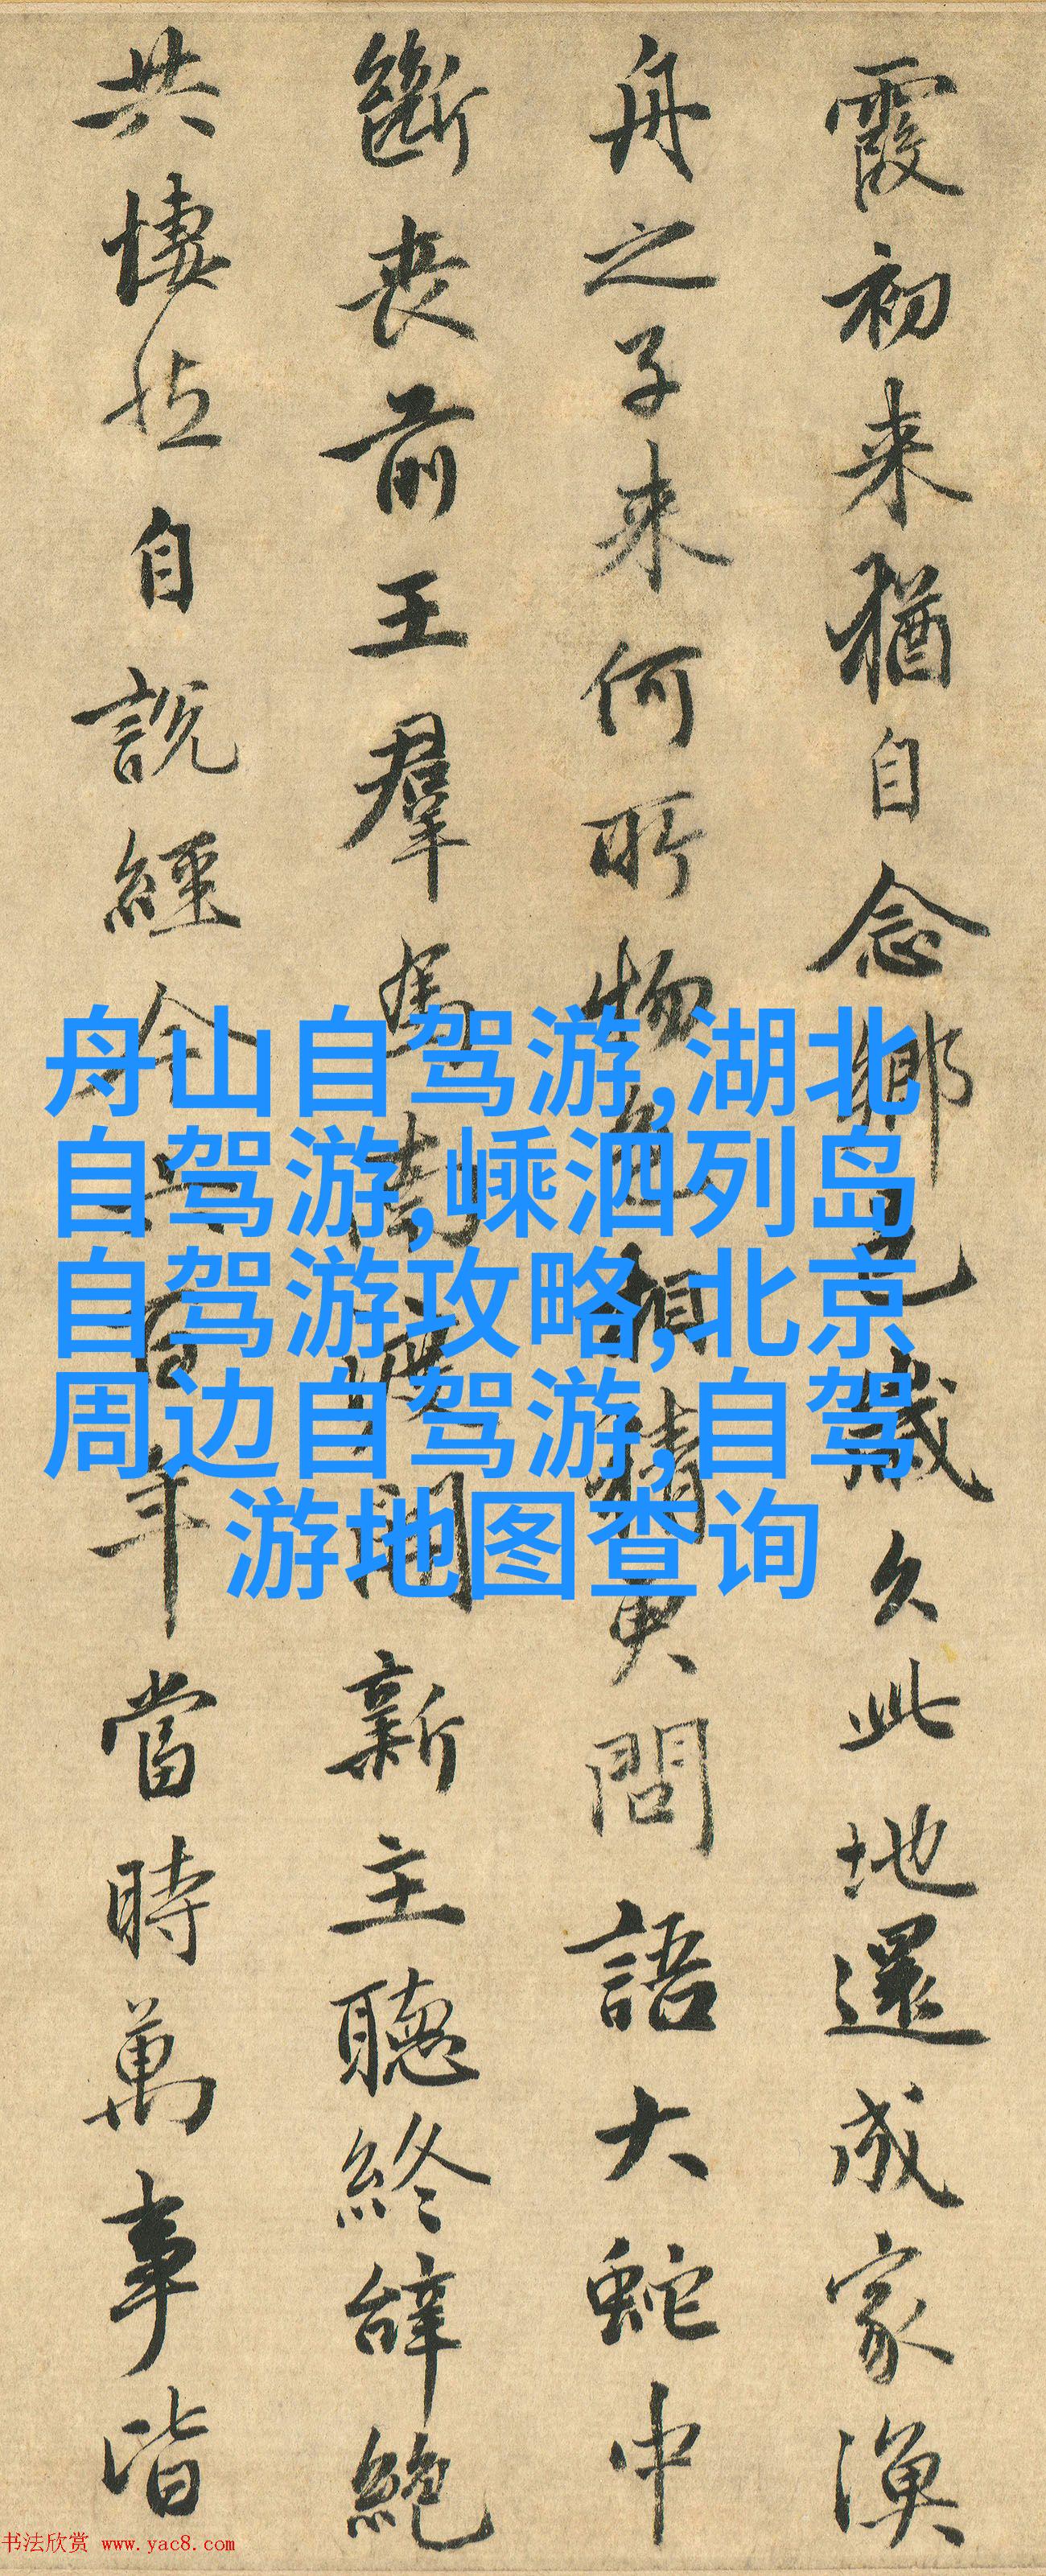 霞初来猶自念鄉邑歲久此地還成家漁
舟之子来何所物色相猜更問語大蛇中
斷喪前王羣馬南渡開新主聽終辭絶
共悽然自説經今六百年當時萬事皆
舟山自驾游,湖北
自驾游,嵊泗列岛
自驾游攻略,北京
周边自驾游,自驾
游地图查询
书法欣赏 www.yac8.com